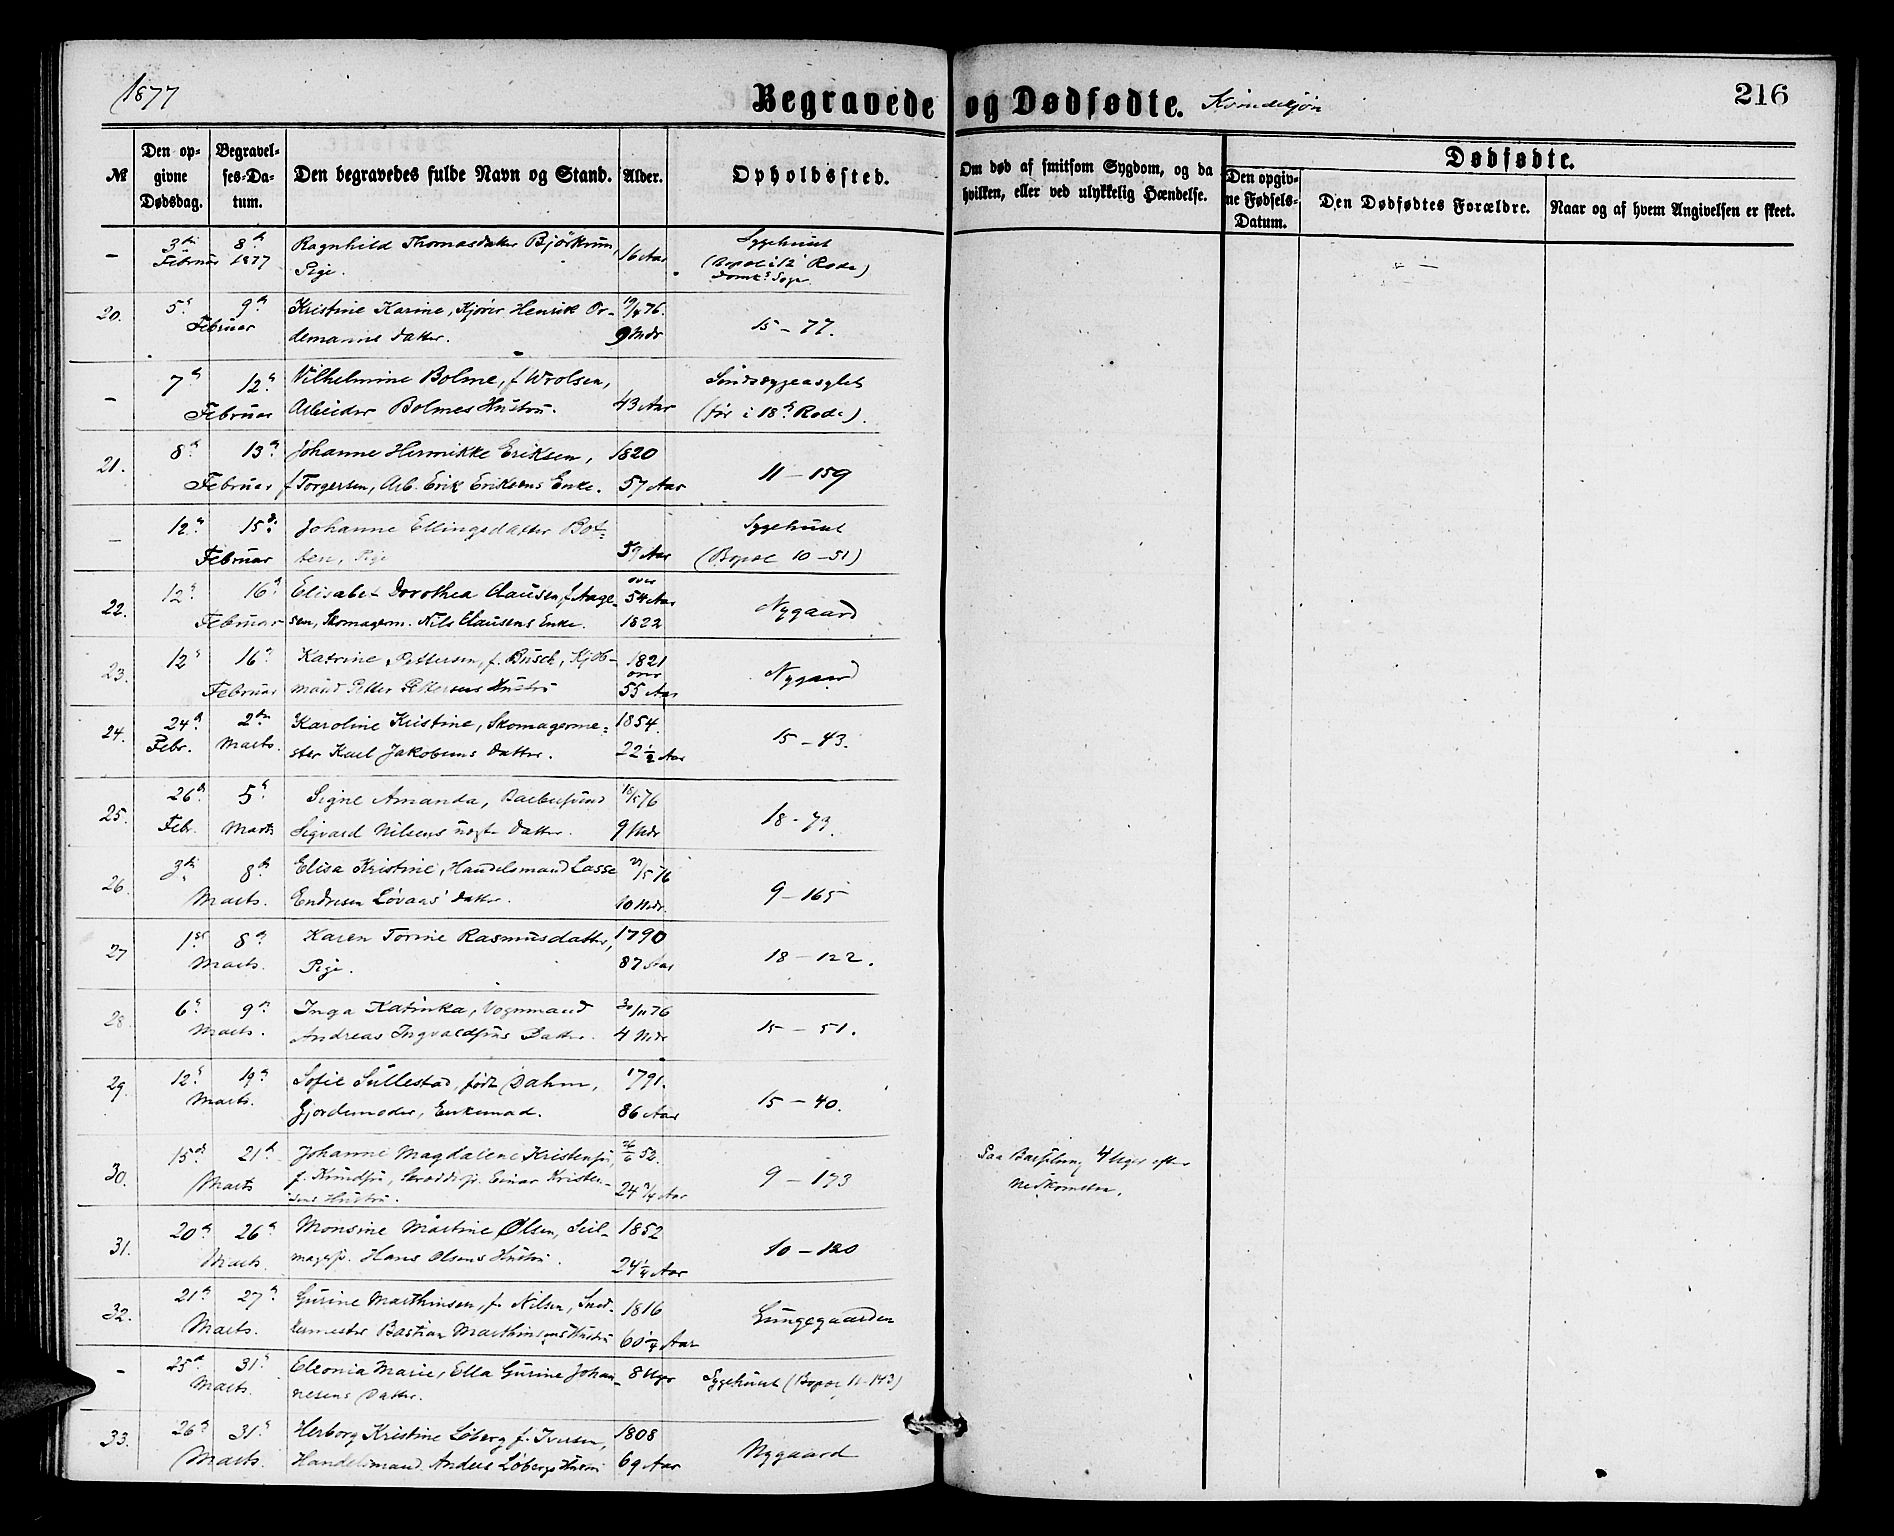 1877
Begravede og Dødfødte. Kvindekjøn
216
№
Den op-
givne
Dødsdag.
Begravel-
ses-Da-
tum.
Den begravedes fulde Navn og Stand.
Alder.
Opholdssted.
Om død af smitsom Sygdom, og da
hvilken, eller ved ulykkelig Hændelse.
Dødfødte.
Den opgiv-
ne Fødsels-
Datum.
Den Dødfødtes Forældre.
Naar og af hvem Angivelsen er skeet.
– 3die 8de Ragnhild Thomasdatter 16 Aar Sygehuset
Februar 1877 Pige. (Bopæl i 12 Rode)
Domk. Sogn
20. 5te 9de Kristine Karine, Henrik Or- 9 Mdr 15 – 77.
Februar demanns Datter.
– 7de 12te Vilhelmine Bolme, f. Wrolsen, 43 Aar Sindssygeasylet
Februar Arbeider Bolmes Hustru. (før i 18de Rode).
21. 8de 13de Johanne Henrikke Eriksen, 1820 11 – 159
Februar f. Torgersen, Arb. Erik Eriksens Enke. 57 Aar
– 12te 15de Johanne Ellingsdatter Bot- Sygehuset
Februar ten, Pige 59 Aar (Bopæl 10 – 51)
22. 12te 16de Elisabet Dorothea Clausen, f. Aage- over 54 Aar Nygaard
Februar sen, Skomagerm. Nils Clausens Enke. 1822
23. 12te 16de Katrine Pettersen, f. Busch, Kjøb- 1821 Nygaard
over
Februar mand Petter Pettersens Hustru 55 Aar
24. 24de 2den Karoline Kristine, Skomagerme- 1854. 15 – 43.
Febr. Marts. ster Karl Jakobsens Datter. 22½ Aar
25. 26de 5te Signe Amanda, 18 – 73.
Febr. Marts Sigvard Nilsens uægte Datter. 9 Mdr
26. 3die 8de Elisa Kristine, Handelsmand Lasse 9 – 165
Marts. Endresen Løvaas' Datter. 10 Mdr.
27 1ste 8de Karen Tomine Rasmusdatter, 1790 18 – 122.
Marts. Pige. 87 Aar
28. 6te 9de Inga Katinka, Vognmand 30/11 76 15 – 51.
Marts. Andreas Ingvaldsens Datter. 4 Mdr
29. 12te 19de Sofie Sullestad, født Dahm, 1791. 15 – 40.
Marts. Gjordemoder, Enkemad. 86 Aar
30. 15de 21de Johanne Magdalene Kristensen, 26/6 52. 9 – 173 Paa Barselseng 4 Uger efter
Marts f. Knudsen, Einar Kristen- 24¾ Aar Nedkomsten.
sens Hustru.
31. 20de 26de Monsine Martine Olsen, Seil- 1852 10 – 120
Marts. magersv. Hans Olsens Hustru. 24¼ Aar
32. 21de 27de Gurine Marthinsen, f. Nilsen, Sned- 1816 Lungegaarden
Marts. kermester Bastian Marthinsens Hustru 60¼ Aar
– 25de 31te Eleonia Marie, Ella Gurine Johan- 8 Uger Sygehuset (Bopæl 11–143)
Marts. nesens Datter.
33. 26de 31te Herborg Kristine Løberg f. Iversen, 1808 Nygaard
Marts. Handelsmand Anders Løbergs Hustru 69 Aar